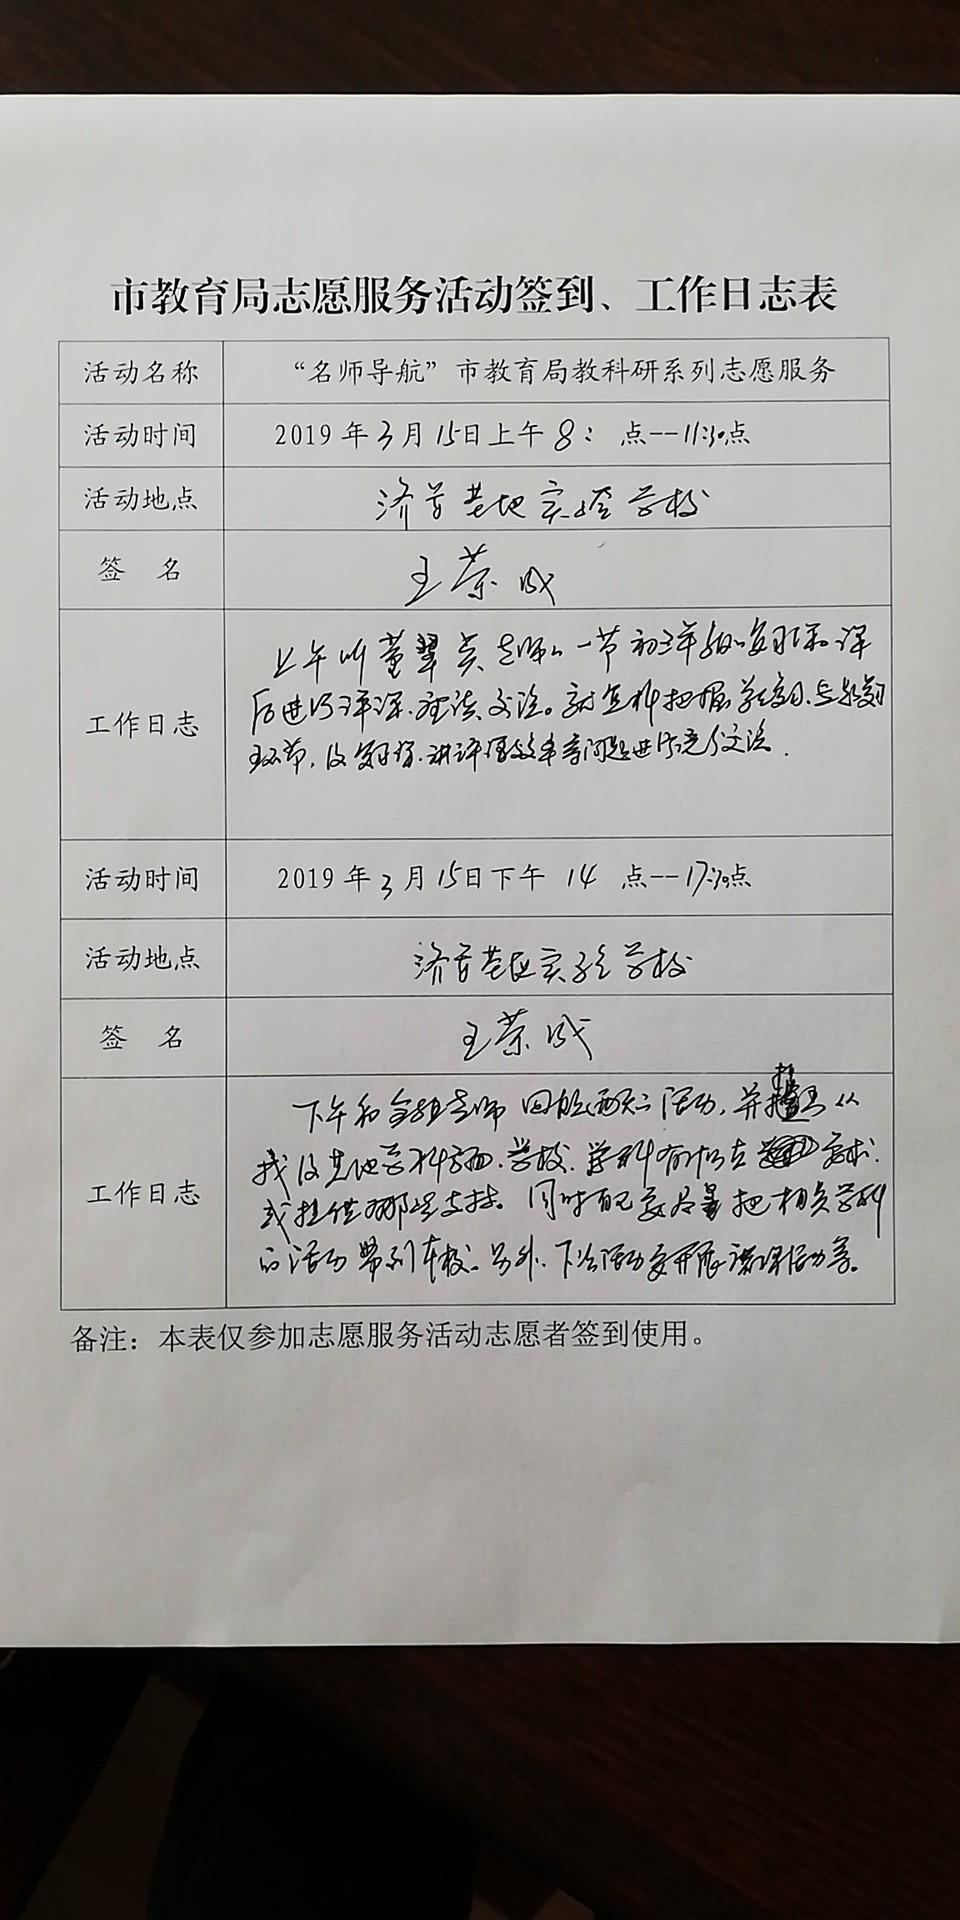 市教育局志愿服务活动签到、工作日志表
活动名称 “名师导航”市教育局教科研系列志愿服务
活动时间 2019年3月15日上午8: 点--11:30点
活动地点 实验学校
签 名 王荣成
上午听董翠 老师的一节初三年级的复习课。课
后进行评课、座谈、交流。
工作日志
环节,及 讲评课效率等问题进行充分交流.
活动时间 2019年3月15日下午14 点--17:30点
活动地点 实验学校
签 名 王荣成
下午和全组老师回顾两天的活动,并
我及其他学科 学校、学科有什么 要求.
工作日志
或提供哪些支持。同时 要尽量把相关学科
的活动带到本校。另外,下次活动要开展 课活动等。
备注:本表仅参加志愿服务活动志愿者签到使用。